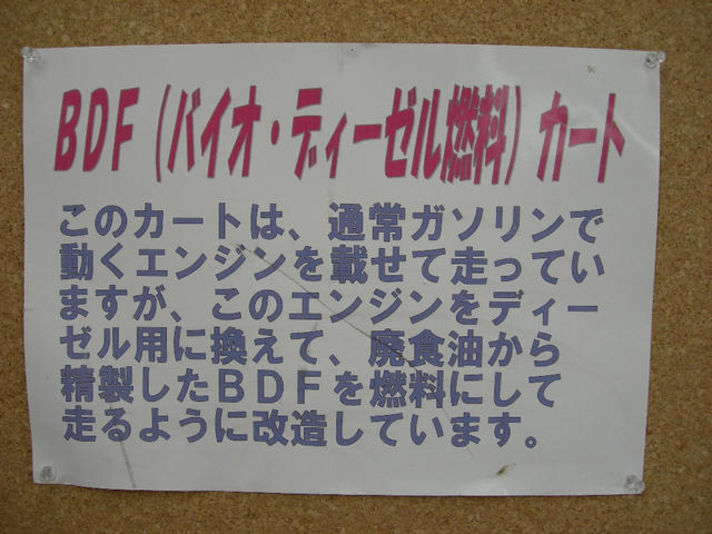 BDF（バイオ・ディーゼル燃料）カート
このカートは、通常ガソリンで
動くエンジンを載せて走ってい
ますが、このエンジンをディー
ゼル用に換えて、廃食油から
精製したＢＤＦを燃料にして
走るように改造しています。